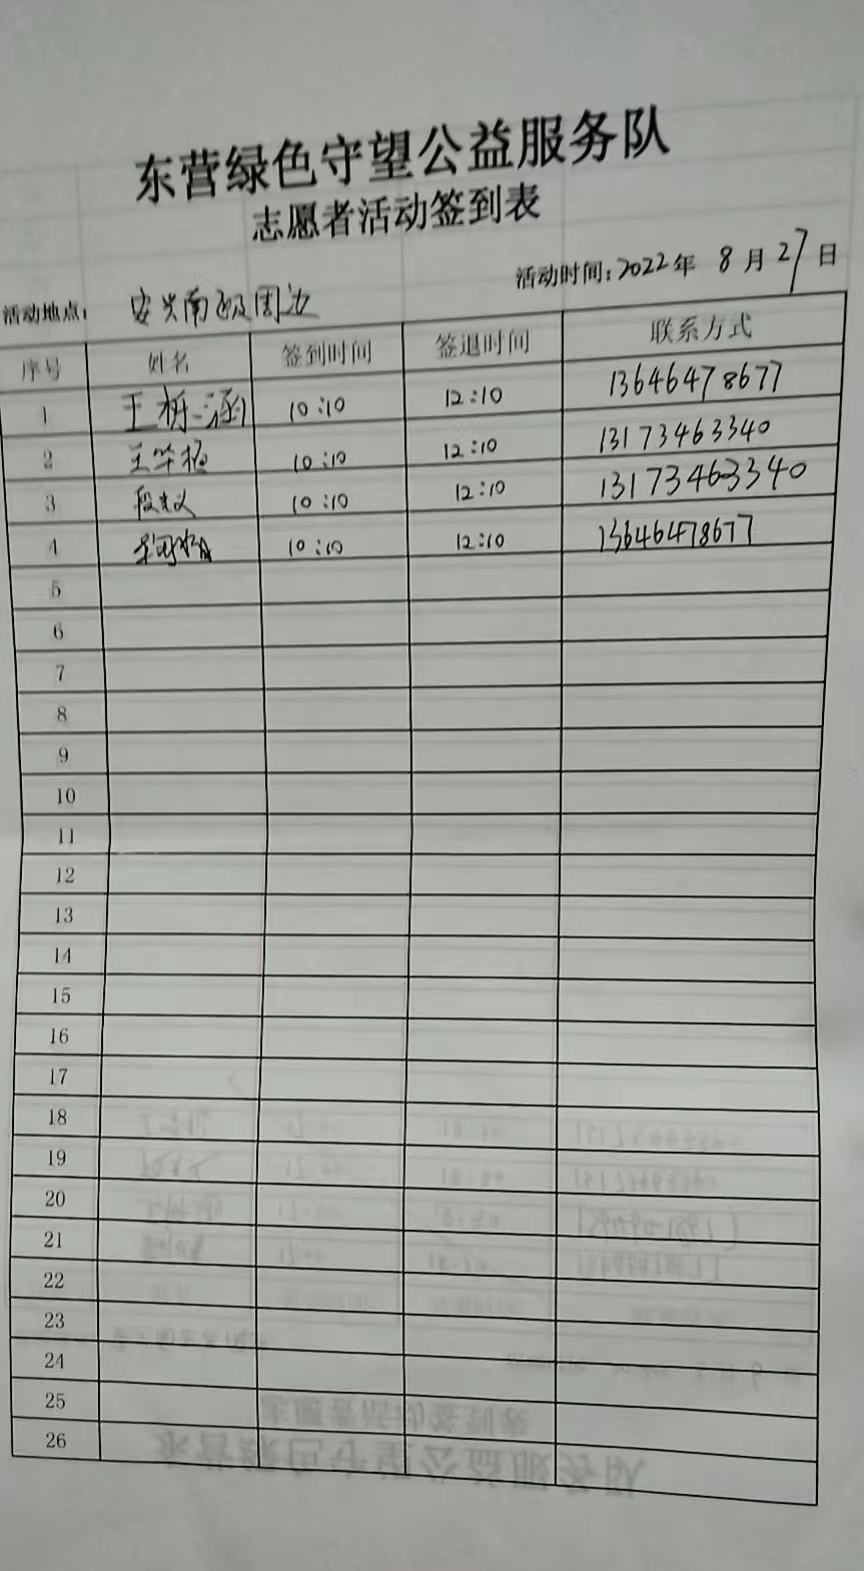 东营绿色守望公益服务队
志愿者活动签到表
活动时间：2022年 8月27日
活动地点： 安兴南区周边
序号 姓名 签到时间 签退时间 联系方式
1 王 涵 10:10 12:10 13646478677
2 王华 10:10 12:10 13173463340
3 段 义 10:10 12:10 13173463340
4 10:10 12:10 13646478677
5
6
7
8
9
10
11
12
13
14
15
16
17
18
19
20
21
22
23
24
25
26